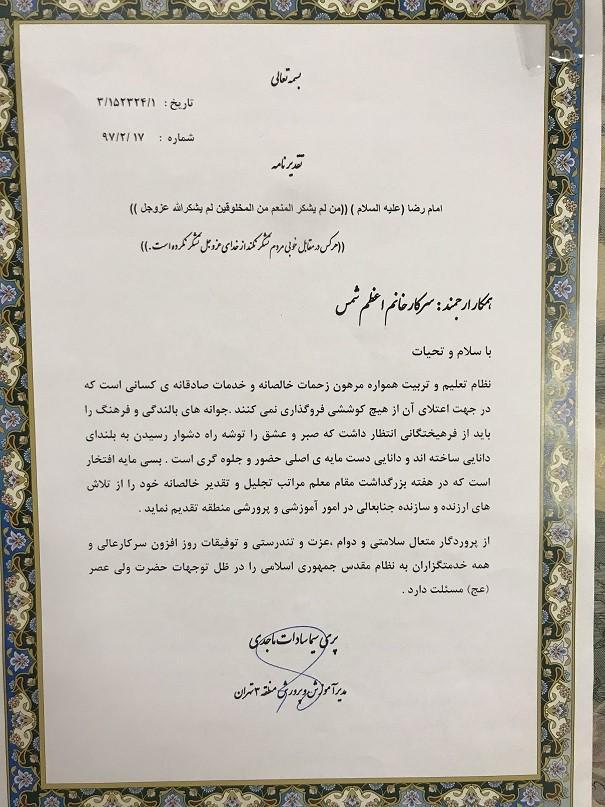 بسمه تعالی
تاریخ : ۳/۱۵۲۳۲۴/۱
شماره : ۹۷/۲/۱۷
تقدیرنامه
امام رضا (علیه السلام ) ((من لم یشکر المنعم من المخلوقین لم یشکرالله عزوجل ))
((هرکس در مقابل خوبی مردم تشکر نکند از خدای عزوجل تشکر نکرده است.))
همکار ارجمند: سرکار خانم اعظم شمس
با سلام و تحیات
نظام تعلیم و تربیت همواره مرهون زحمات خالصانه و خدمات صادقانه ی کسانی است که
در جهت اعتلای آن از هیچ کوششی فروگذاری نمی کنند .جوانه های بالندگی و فرهنگ را
باید از فرهیختگانی انتظار داشت که صبر و عشق را توشه راه دشوار رسیدن به بلندای
دانایی ساخته اند و دانایی دست مایه ی اصلی حضور و جلوه گری است . بسی مایه افتخار
است که در هفته بزرگداشت مقام معلم مراتب تجلیل و تقدیر خالصانه خود را از تلاش
های ارزنده و سازنده جنابعالی در امور آموزشی و پرورشی منطقه تقدیم نماید .
از پروردگار متعال سلامتی و دوام ،عزت و تندرستی و توفیقات روز افزون سرکارعالی و
همه خدمتگزاران به نظام مقدس جمهوری اسلامی را در ظل توجهات حضرت ولی عصر
(عج) مسئلت دارد .
پری سیما سادات ماجدی
مدیر آموزش و پرورش منطقه ۳ تهران